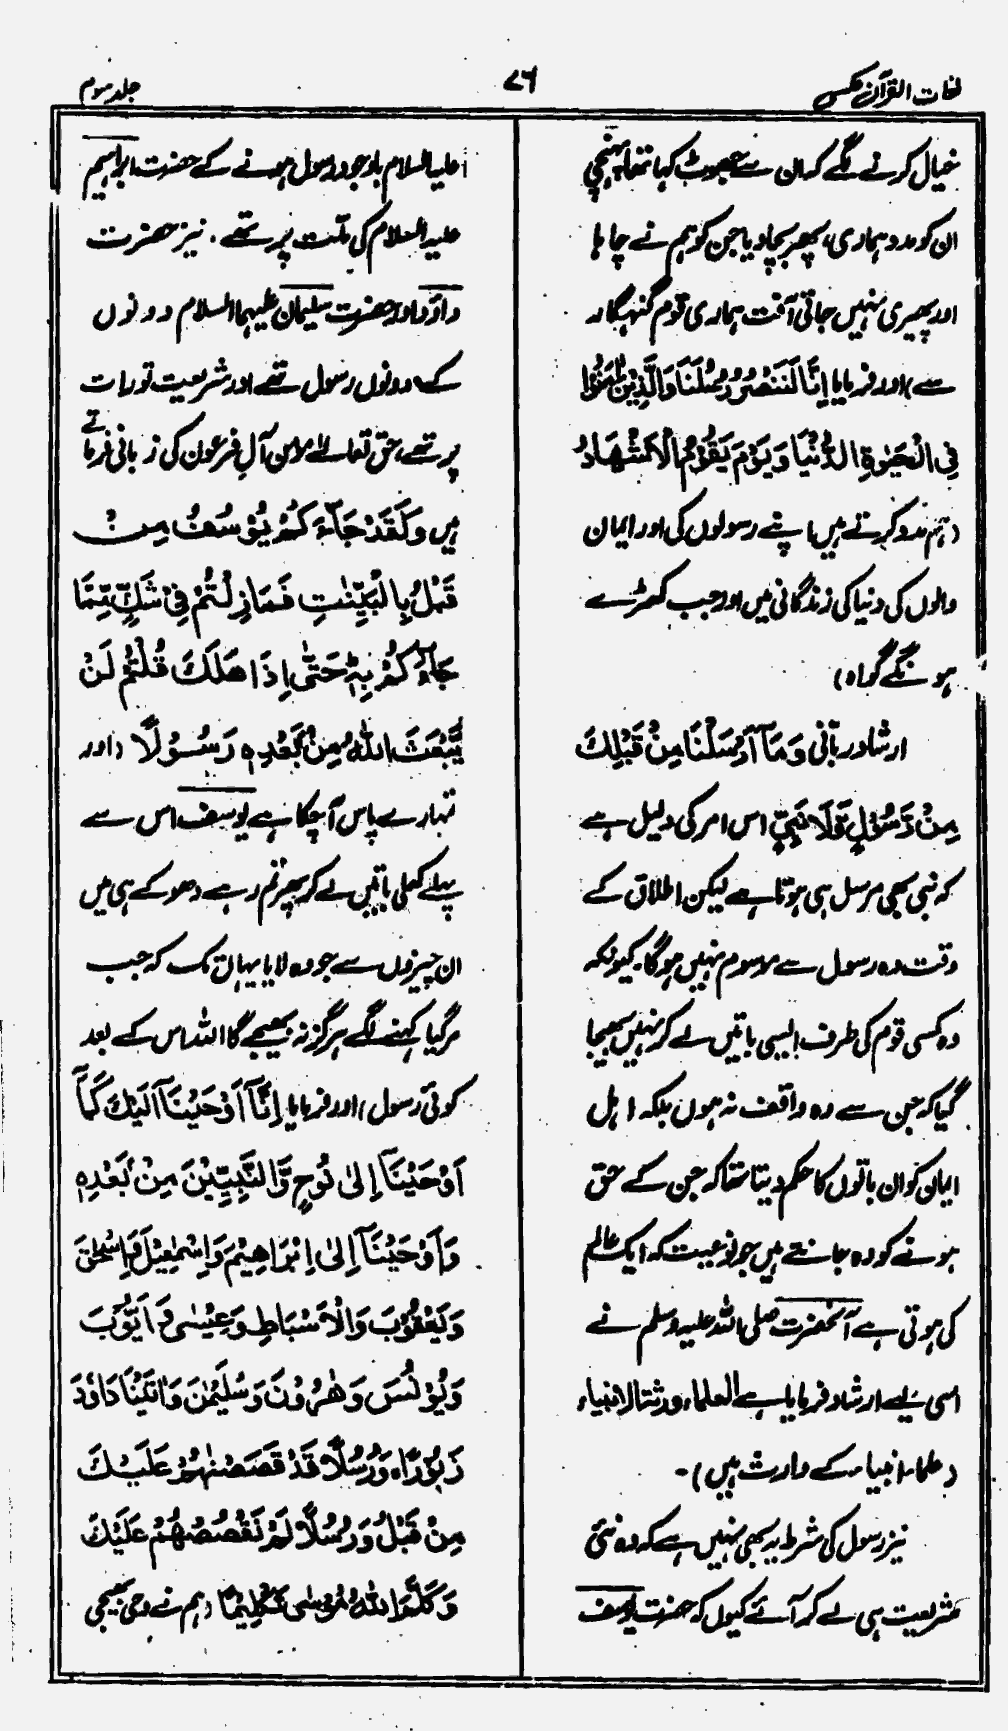 لغات القرآن عکسی
۷۶
جلد سوم
خیال کرنے لگے کہ ان سے جھوٹ کہا تھا، پہنچی
ان کو مدد ہماری، پھر بچا دیا جن کو ہم نے چاہا
اور پھیری نہیں جاتی آفت ہماری قوم گنہگار
سے) اور فرمایا اِنَّا لَنَنْصُرُ رُسُلَنَا وَالَّذِيْنَ اٰمَنُوْا
فِى الْحَيٰوةِ الدُّنْيَا وَيَوْمَ يَقُوْمُ الْاَشْهَادُ
(ہم مدد کرتے ہیں اپنے رسولوں کی اور ایمان
والوں کی دنیا کی زندگانی میں اور جب کھڑے
ہونگے گواہ)
ارشاد ربّانی وَمَآ اَرْسَلْنَا مِنْ قَبْلِكَ
مِنْ رَّسُوْلٍ وَّلَا نَبِيٍّ اس امر کی دلیل ہے
کہ نبی بھی مرسل ہی ہوتا ہے لیکن اطلاق کے
وقت وہ رسول سے موسوم نہیں ہوگا۔ کیونکہ
وہ کسی قوم کی طرف ایسی باتیں لے کر نہیں بھیجا
گیا کہ جن سے وہ واقف نہ ہوں بلکہ اہل
ایمان کو ان باتوں کا حکم دیتا تھا کہ جن کے حق
ہونے کو وہ جانتے ہیں جو نوعیت کہ ایک عالم
کی ہوتی ہے آنحضرت صلی اللہ علیہ وسلم نے
اسی لیے ارشاد فرمایا ہے العلماء ورثۃ الانبیاء
(علماء انبیاء کے وارث ہیں)۔
نیز رسول کی شرط یہ بھی نہیں ہے کہ وہ نئی
شریعت ہی لے کر آئے کیوں کہ حضرت یوسف
علیہ السلام باوجود رسول ہونے کے حضرت ابراہیم
علیہ السلام کی ملّت پر تھے۔ نیز حضرت
داؤد اور حضرت سلیمان علیہما السلام دونوں
کے دونوں رسول تھے اور شریعت تورات
پر تھے، حق تعالےٰ مومن آلِ فرعون کی زبانی فرماتے
ہیں وَلَقَدْ جَآءَكُمْ يُوْسُفُ مِنْ
قَبْلُ بِالْبَيِّنٰتِ فَمَا زِلْتُمْ فِيْ شَكٍّ مِّمَّا
جَآءَكُمْ بِهٖ حَتّٰى اِذَا هَلَكَ قُلْتُمْ لَنْ
يَّبْعَثَ اللّٰهُ مِنْ بَعْدِهٖ رَسُوْلًا (اور
تمہارے پاس آچکا ہے یوسف اس سے
پہلے کھلی باتیں لے کر پھر تم رہے دھوکے ہی میں
ان چیزوں سے جو وہ لایا یہاں تک کہ جب
مرگیا کہنے لگے ہرگز نہ بھیجے گا اللہ اس کے بعد
کوئی رسول) اور فرمایا اِنَّآ اَوْحَيْنَآ اِلَيْكَ كَمَآ
اَوْحَيْنَآ اِلٰى نُوْحٍ وَّالنَّبِيّٖنَ مِنْ بَعْدِهٖ
وَاَوْحَيْنَآ اِلٰى اِبْرَاهِيْمَ وَاِسْمٰعِيْلَ وَاِسْحٰقَ
وَيَعْقُوْبَ وَالْاَسْبَاطِ وَعِيْسٰى وَاَيُّوْبَ
وَيُوْنُسَ وَهٰرُوْنَ وَسُلَيْمٰنَ وَاٰتَيْنَا دَاوٗدَ
زَبُوْرًا، وَرُسُلًا قَدْ قَصَصْنٰهُمْ عَلَيْكَ
مِنْ قَبْلُ وَرُسُلًا لَّمْ نَقْصُصْهُمْ عَلَيْكَ
وَكَلَّمَ اللّٰهُ مُوْسٰى تَكْلِيْمًا (ہم نے وحی بھیجی